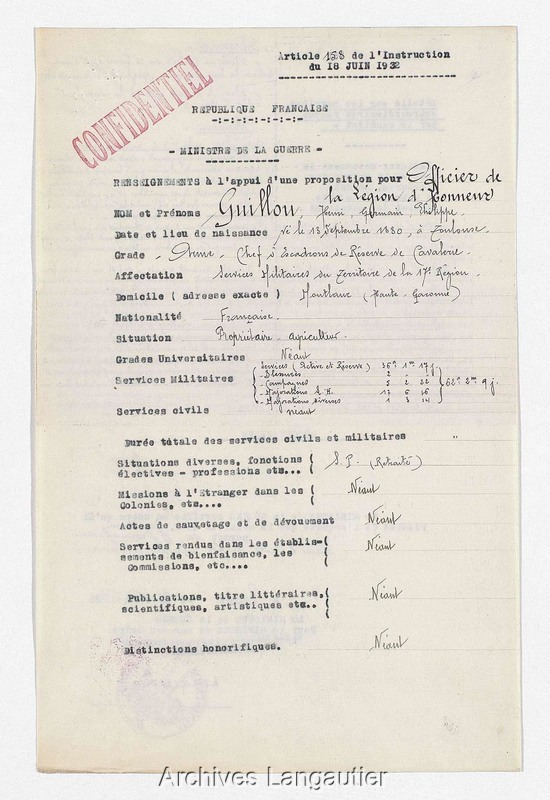 Article 158 de l'Instruction
du 18 JUIN 1932
CONFIDENTIEL
REPUBLIQUE FRANCAISE
-:-:-:-:-:-:-:-
- MINISTRE DE LA GUERRE -
RENSEIGNEMENTS à l'appui d'une proposition pour Officier de
la Légion d'Honneur
NOM et Prénoms Guillou, Henri, Germain, Philippe.
Date et lieu de naissance Né le 13 Septembre 1880, à Toulouse.
Grade - Arme - Chef d'Escadrons de Réserve de Cavalerie.
Affectation Services Militaires du Territoire de la 17e Région.
Domicile ( adresse exacte ) Montlaur (Haute-Garonne)
Nationalité Française.
Situation Propriétaire-agriculteur.
Grades Universitaires Néant
Services Militaires { Services (Active et Réserve) 36a 1m 17j
- Blessures
- Campagnes 5 2 22
- Majorations
- Majorations diverses 1 3 14 } 62a 2m 9j.
Services civils néant
Durée totale des services civils et militaires "
Situations diverses, fonctions (
électives - professions etc... ( S.P. (Retraité)
Missions à l'Etranger dans les (
Colonies, etc.... ( Néant
Actes de sauvetage et de dévouement Néant
Services rendus dans les établis-(
sements de bienfaisance, les ( Néant
Commissions, etc.... (
Publications, titre littéraires,(
scientifiques, artistiques etc.. ( Néant
Distinctions honorifiques. Néant
Archives Langautier